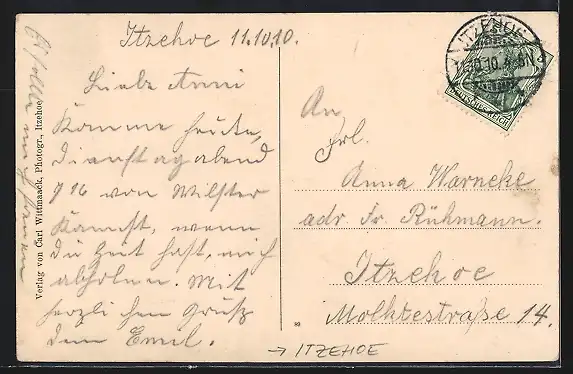 Itzehoe 11.10.10.
Liebe Anni
Komme heute,
Dienstagabend
7 16 von Wilster
Kannst, wenn
Du Zeit hast, mich
abholen. Mit
herzlichen Gruß
dein Emil.
Verlag von Carl Wittmaack, Photogr., Itzehoe
ITZEHOE
11.10.10. 4-5N
DEUTSCHES REICH
An
Frl.
Anna Warncke
adr Fr. Rühmann.
Itzehoe
Moltkestraße 14.
→ ITZEHOE